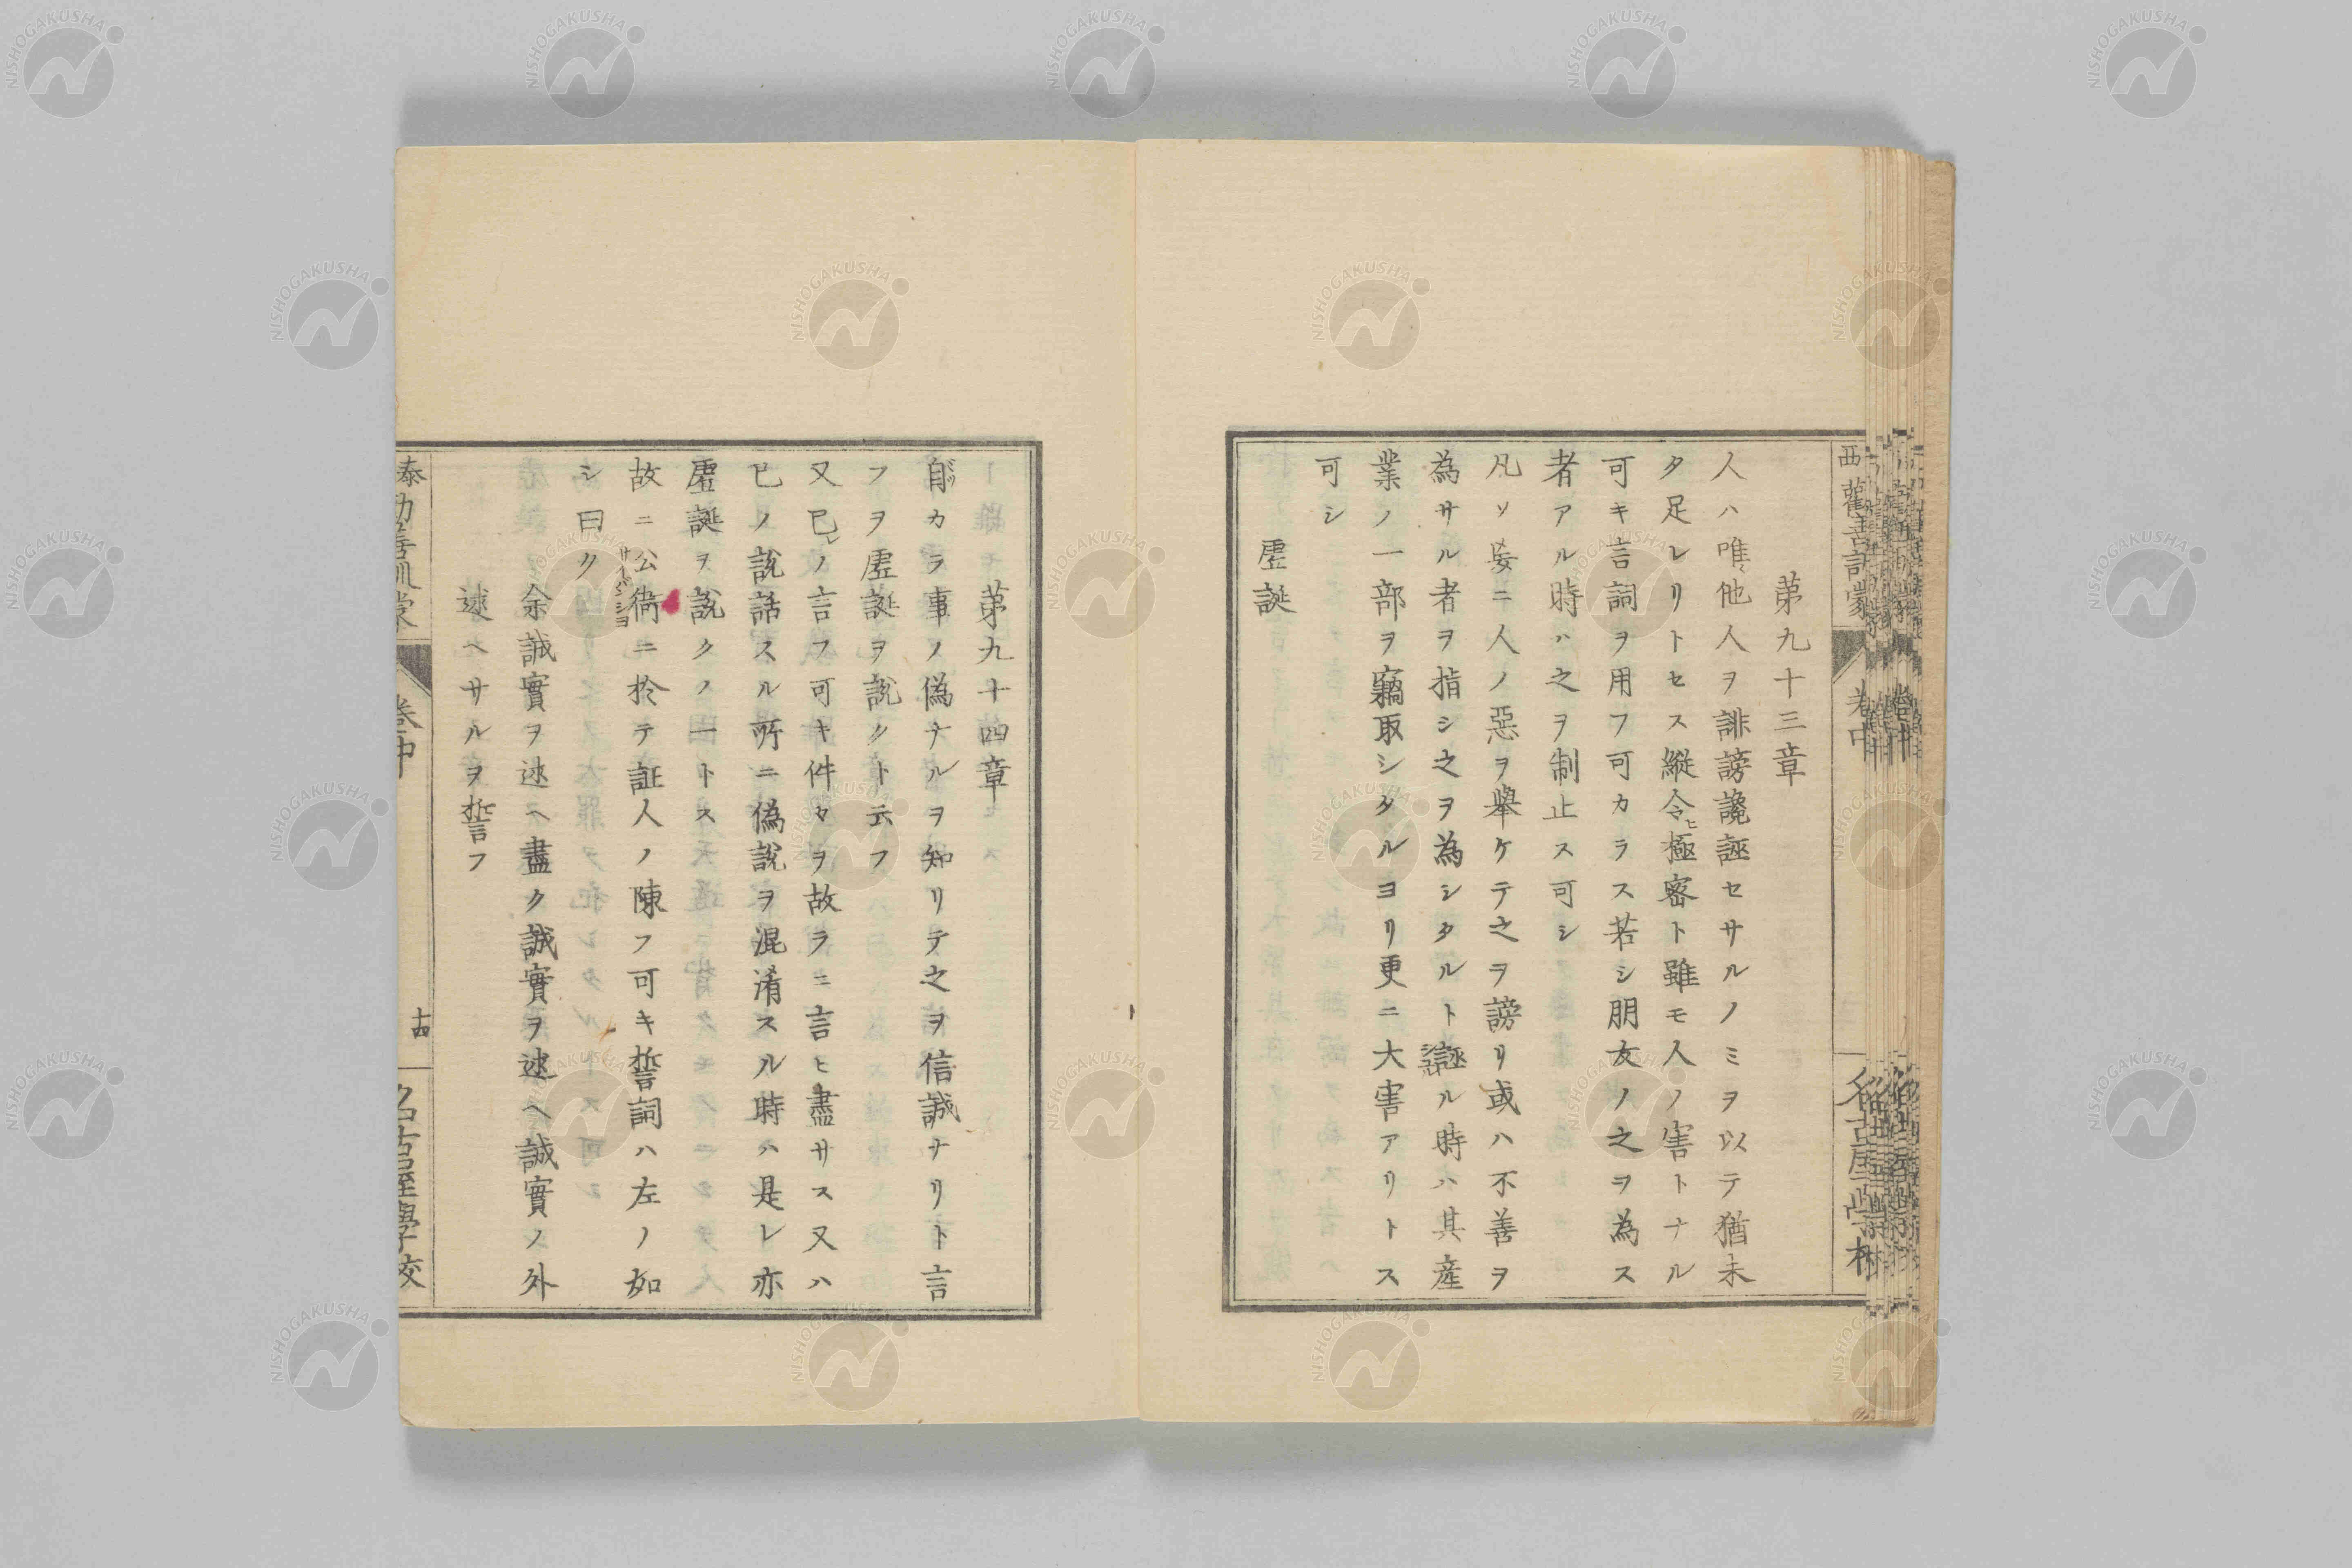 第九十三章
人ハ唯他人ヲ誹謗讒誣セサルノミヲ以テ猶未
タ足レリトセス縦令ヒ極密ト雖モ人ノ害トナル
可キ言詞ヲ用フ可カラス若シ朋友ノ之ヲ為ス
者アル時ハ之ヲ制止ス可シ
凡ソ妄ニ人ノ惡ヲ擧ケテ之ヲ謗リ或ハ不善ヲ
為サル者ヲ指シ之ヲ為シタルト誣ル時ハ其産
業ノ一部ヲ竊取シタルヨリ更ニ大害アリトス
可シ
虚誕
第九十四章
自カラ事ノ偽ナルヲ知リテ之ヲ信誠ナリト言
フヲ虚誕ヲ説クト云フ
又已レノ言フ可キ件々ヲ故ラニ言ヒ盡サス又ハ
已ノ說話スル所ニ偽說ヲ混淆スル時ハ是レ亦
虚誕ヲ說クノ一トス
故ニ公衙ニ於テ証人ノ陳フ可キ誓詞ハ左ノ如
サイバンシヨ
シ曰ク
余誠實ヲ述ヘ盡ク誠實ヲ述ヘ誠實ノ外
述ヘサルヲ誓フ
泰勸善訓蒙
卷中
十四
名古屋學校
NISHOGAKUSHA